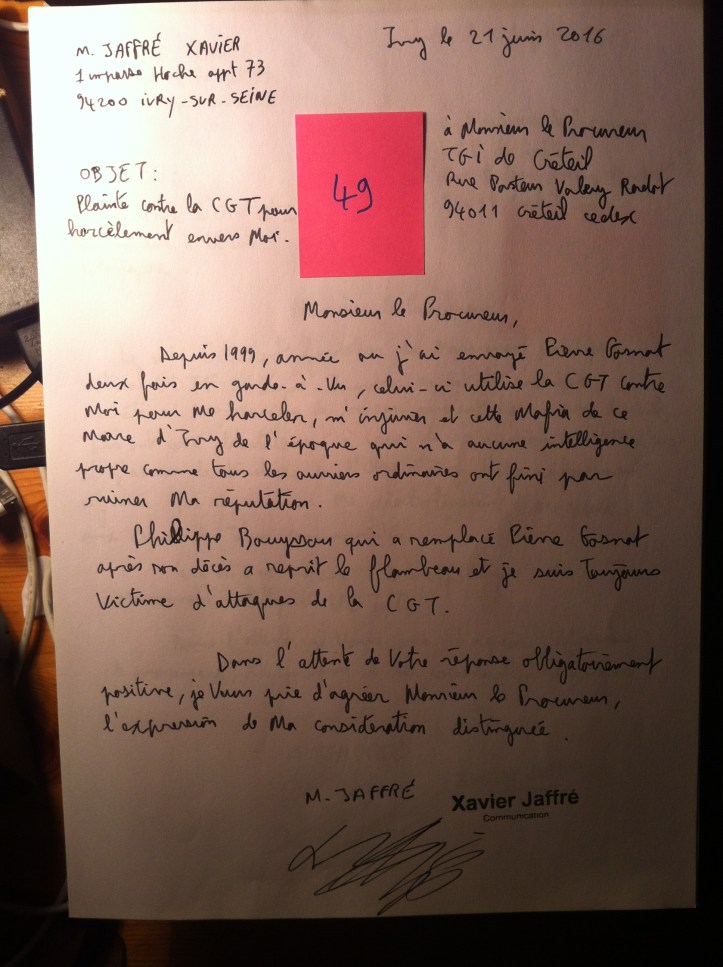 M. JAFFRÉ XAVIER
1 impasse Hoche appt 73
94200 IVRY-SUR-SEINE
Ivry le 21 juin 2016
à Monsieur le Procureur
TGI de Créteil
Rue Pasteur Valery Radot
94011 Créteil cedex
OBJET :
Plainte contre la CGT pour
harcèlement envers Moi.
49
Monsieur le Procureur,
Depuis 1999, année ou j'ai envoyé Pierre Gosnat
deux fois en garde-à-Vue, celui-ci utilise la CGT contre
Moi pour Me harceler, m'injurier et cette Mafia de ce
Maire d'Ivry de l'époque qui n'a aucune intelligence
propre comme tous les ouvriers ordinaires ont fini par
ruiner Ma réputation.
Philippe Bouyssou qui a remplacé Pierre Gosnat
après son décès a reprit le flambeau et je suis Toujours
Victime d'attaques de la CGT.
Dans l'attente de Votre réponse obligatoirement
positive, je Vous prie d'agréer Monsieur le Procureur,
l'expression de Ma considération distinguée.
M. JAFFRÉ
Xavier Jaffré
Communication